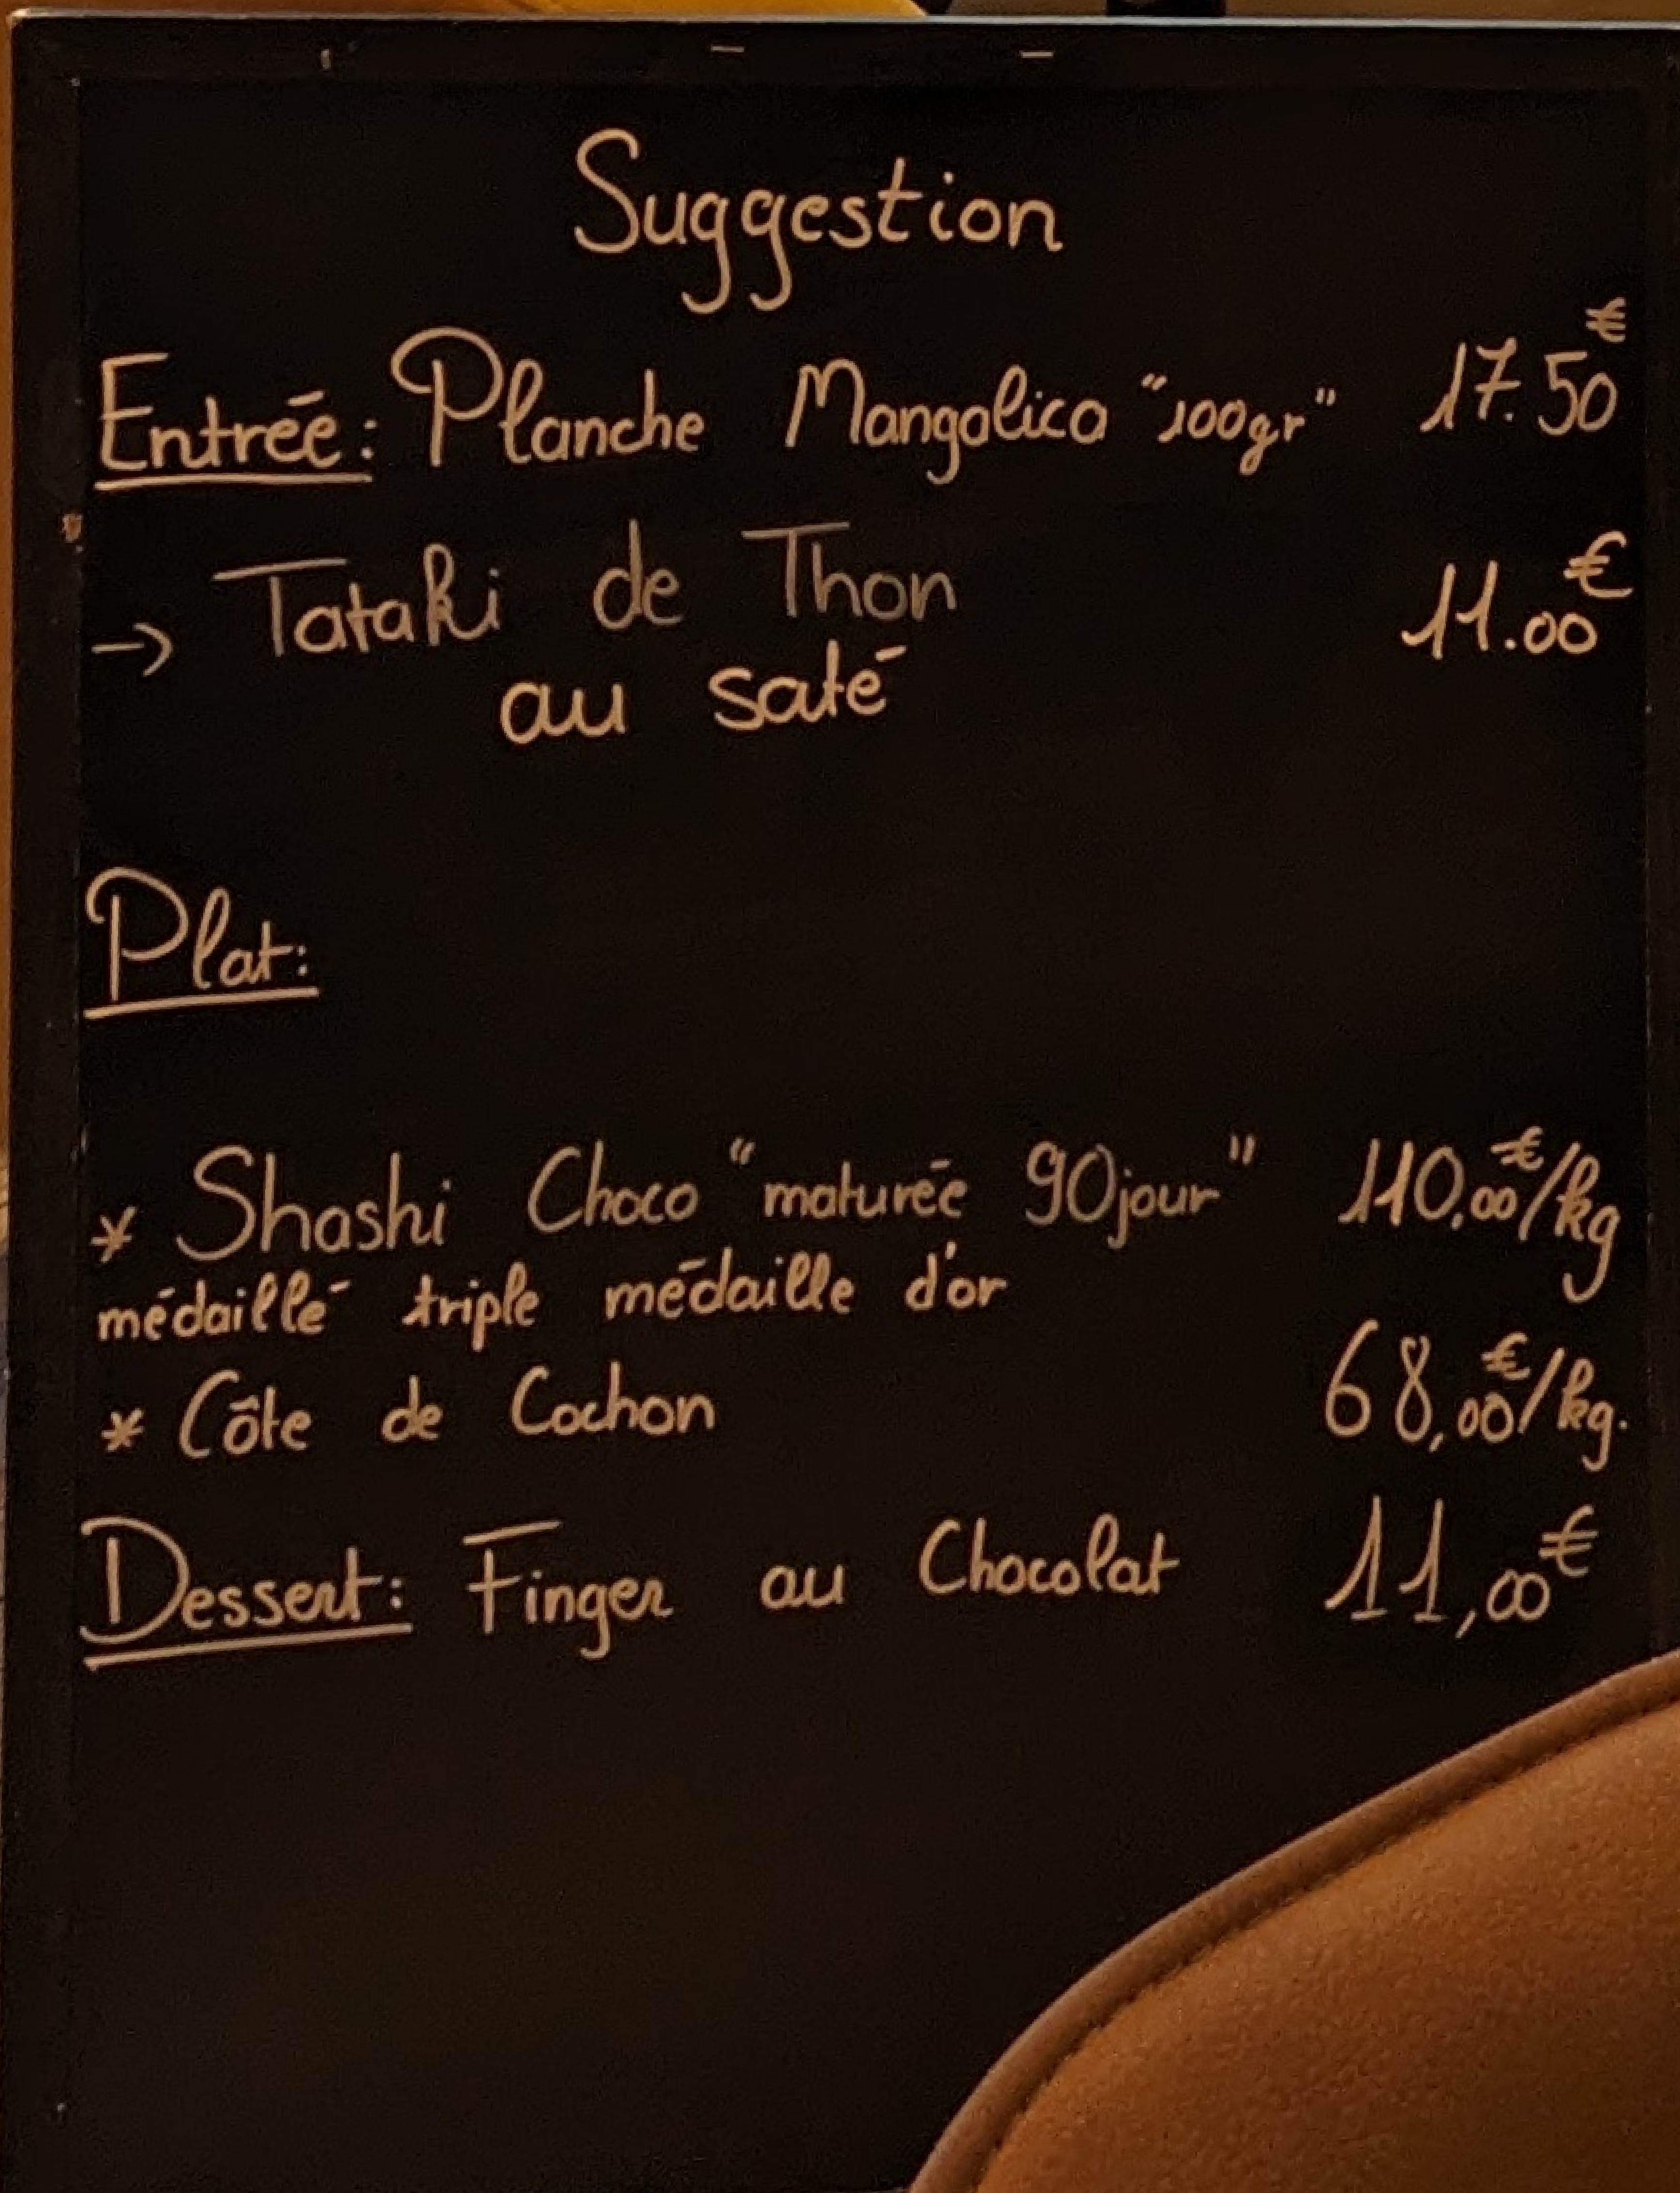 Suggestion
Entrée: Planche Mangalica "100gr" 17.50€
→ Tataki de Thon 11.00€
au saté
Plat:
* Shashi Choco "maturée 90jour" 110,00€/kg
médaillé triple médaille d'or
* Côte de Cochon 68,00€/kg.
Dessert: Finger au Chocolat 11,00€